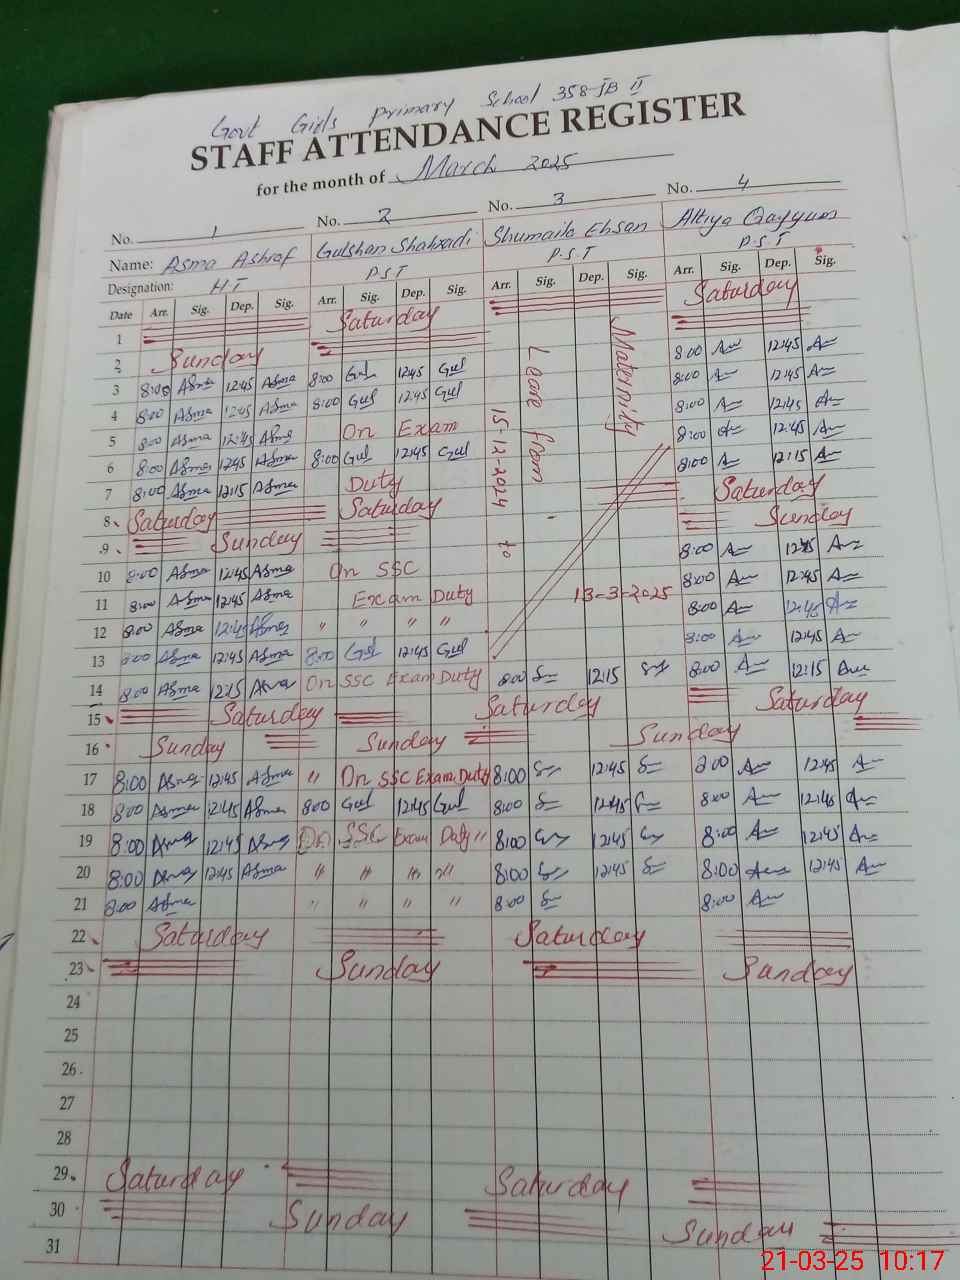 Govt Girls Primary School 358-JB II
STAFF ATTENDANCE REGISTER
for the month of March 2025
No. 1 No. 2 No. 3 No. 4
Name: Asma Ashraf Gulshan Shahzadi Shumaila Ehsan Attiya Qayyum
Designation: H T P.S.T P.S.T P.S.T
Date Arr. Sig. Dep. Sig. Arr. Sig. Dep. Sig. Arr. Sig. Dep. Sig. Arr. Sig. Dep. Sig.
1 Saturday Saturday
2 Sunday
3 8:00 Asma 12:45 Asma 8:00 Gul 12:45 Gul 8:00 12:45
4 8:00 Asma 12:45 Asma 8:00 Gul 12:45 Gul 8:00 12:45
5 8:00 Asma 12:45 Asma On Exam 8:00 12:45
6 8:00 Asma 12:45 Asma 8:00 Gul 12:45 Gul 8:00 12:45
7 8:00 Asma 12:15 Asma Duty 8:00 12:15
Maternity
Leave from
15-12-2024 to
13-3-2025
8 Saturday Saturday Saturday
9 Sunday Sunday
10 8:00 Asma 12:45 Asma On SSC 8:00 12:45
11 8:00 Asma 12:45 Asma Exam Duty 8:00 12:45
12 8:00 Asma 12:45 Asma " " " " 8:00 12:45
13 8:00 Asma 12:45 Asma 8:00 Gul 12:45 Gul 8:00 12:45
14 8:00 Asma 12:15 Asma On SSC Exam Duty 8:00 12:15 8:00 12:15
15 Saturday Saturday Saturday
16 Sunday Sunday Sunday
17 8:00 Asma 12:45 Asma " On SSC Exam Duty 8:00 12:45 8:00 12:45
18 8:00 Asma 12:45 Asma 8:00 Gul 12:45 Gul 8:00 12:45 8:00 12:45
19 8:00 Asma 12:45 Asma On SSC Exam Duty " 8:00 12:45 8:00 12:45
20 8:00 Asma 12:45 Asma " " " " 8:00 12:45 8:00 12:45
21 8:00 Asma " " " " 8:00 8:00
22 Saturday Saturday
23 Sunday Sunday
24
25
26
27
28
29 Saturday Saturday
30 Sunday Sunday
31
21-03-25 10:17